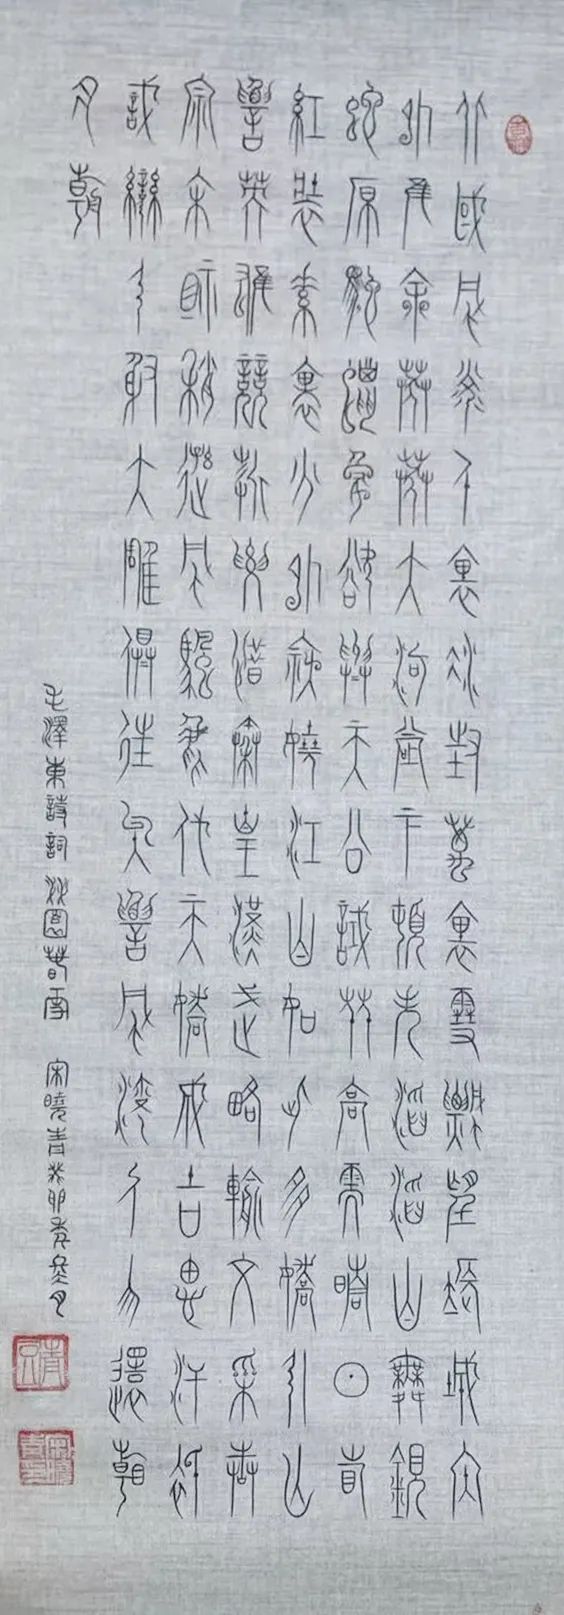 北國風光千里冰封萬里雪飄望長城內
外惟余莽莽大河上下頓失滔滔山舞銀
蛇原馳蠟象欲與天公試比高須晴日看
紅裝素裹分外妖嬈江山如此多嬌引無
數英雄競折腰惜秦皇漢武略輸文采唐
宗宋祖稍遜風騷一代天驕成吉思汗只
識彎弓射大雕俱往矣數風流人物還看
今朝
毛澤東詩詞 沁園春雪 宋曉青癸卯年叁月